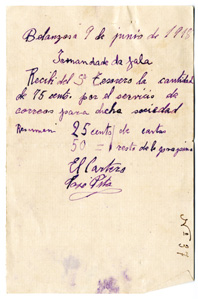 Betanzos 9 de junio de 1918
Irmandade da fala
Recibí del Sr Tesorero la cantidad
de 75 cents. por el servicio de
correos para dicha sociedad
Resumen 25 cents de cartas
50 = resto de la
El Cartero
Nº 37